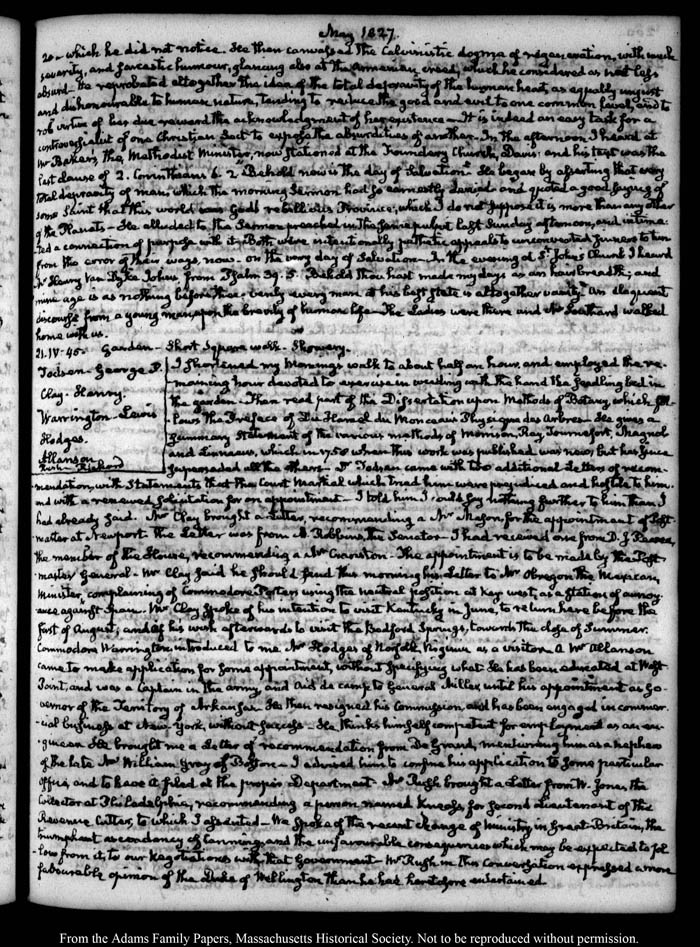 May 1827.
20 — which he did not notice. He then canvassed the Calvinistic dogma of regeneration, with much
severity, and sarcastic humour, glancing also at the Armenian creed, which he considered as not less
absurd — He reprobated altogether the idea of the total depravity of the human heart, as equally unjust
and dishonourable to human nature, tending to reduce the good and evil to one common level, and to
rob virtue of her due reward the acknowledgment of her existence — It is indeed an easy task for a
controversialist of one Christian Sect to expose the absurdities of another. In the afternoon, I heard at
Mr Baker's, the Methodist Minister, now stationed at the Foundery Church, Davis; and his text was the
last clause of 2. Corinthians 6. 2 Behold now is the day of Salvation. He began by asserting that very
total depravity of man, which the morning Sermon had so earnestly denied — and quoted a good saying of
some Saint that this world was God's rebellious Province; which I do not suppose it is more than any other
of the Planets — He alluded to the Sermon preached in the same pulpit last Sunday afternoon, and intima-
ted a connection of purpose with it. Both were intentionally pathetic appeals to unconverted sinners to turn
from the error of their ways now — on the very day of Salvation — In the evening at St. John's Church I heard
Mr Henry Van Dyke Johns from Psalm 39. 5. Behold thou hast made my days as an handbreadth; and
mine age is as nothing before thee: verily every man at his best state is altogether vanity. An eloquent
discourse from a young man, upon the brevity of human life — The Ladies were there and Mr Southard walked
home with us.
21. IV-45. Garden — Short Square walk — Showery.
Todsen — George P. I shortened my Morning's walk to about half an hour, and employed the re-
maining hour devoted to exercise in weeding with the hand the seedling bed in
Clay. Henry. the garden. Then read part of the Dissertation upon Methods of Botany, which fol-
Warrington — Lewis lows the Preface of Du Hamel du Monceau's Physique des Arbres — He gives a
Hodges. summary Statement of the various methods of Morrison, Ray, Tournefort, Magnol
Allanson and Linnaeus, which in 1758 when this work was published was new, but has since
Rush Richard superseded all the others — Dr Todsen came with two additional Letters of recom-
mendation, with Statements that the Court Martial which tried him were prejudiced and hostile to him.
and with a renewed solicitation for an appointment — I told him I could say nothing further to him than I
had already said. Mr Clay brought a Letter, recommending a Mr Mason, for the appointment of Post-
master at Newport. The Letter was from A. Robbins, the Senator — I had received one from D. J. Pearce,
the member of the House, recommending a Mr Cranston — The appointment is to be made by the Post-
master General — Mr Clay said he should send this morning his Letter to Mr Obregon the Mexican
Minister, complaining of Commodore Porter's using the neutral position at Key west, as a station of annoy-
ance against Spain. Mr Clay spoke of his intention to visit Kentucky in June, to return here before the
first of August; and of his wish afterwards to visit the Bedford Springs, towards the close of Summer.
Commodore Warrington introduced to me Mr Hodges of Norfolk Virginia as a visitor. A Mr Allanson
came to make application for some appointment, without specifying what. He has been educated at West
Point, and was a Captain in the army, and Aid de camp to General Miller, until his appointment as Go-
vernor of the Territory of Arkansas. He then resigned his Commission, and has been engaged in commer-
-cial business at New York, without success — He thinks himself competent for employment as an en-
-gineer. He brought me a Letter of recommendation from De Grand, mentioning him as a nephew
of the late Mr William Gray of Boston — I advised him to confine his application to some particular
Office, and to have it filed at the proper Department — Mr Rush brought a Letter from W. Jones, the
Collector at Philadelphia, recommending a person named for second Lieutenant of the
Revenue Cutter, to which I assented — We spoke of the recent change of Ministry in Great-Britain, the
triumphant ascendency of Canning, and the unfavourable consequences which may be expected to fol-
-low from it, to our Negotiations with that Government — Mr Rush in this conversation expressed a more
favourable opinion of the Duke of Wellington than he had heretofore entertained.
From the Adams Family Papers, Massachusetts Historical Society. Not to be reproduced without permission.